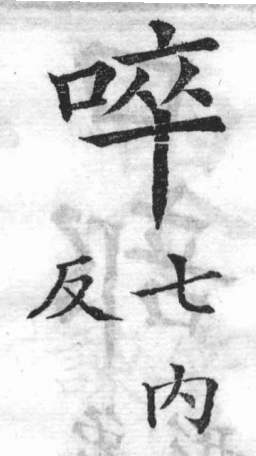 啐
七内
反